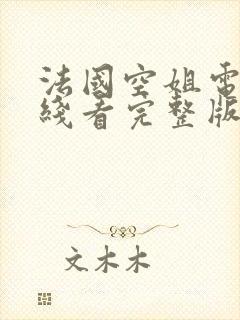 法國空姐電
綫看完整版
文木木